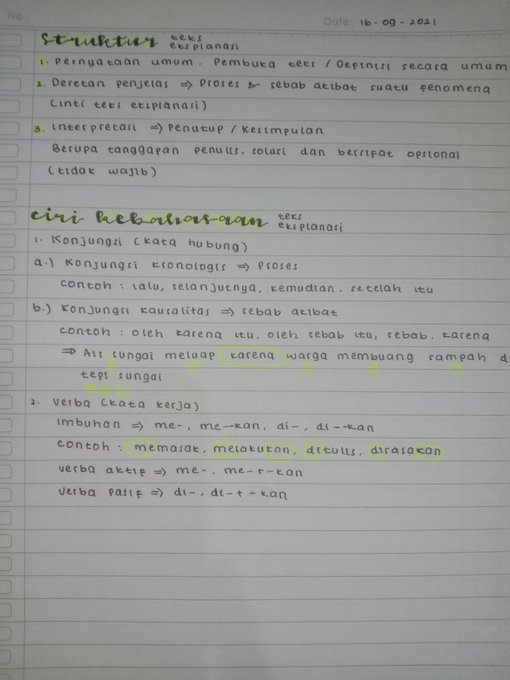 No :
Date: 16 - 09 - 2021
Struktur teks eksplanasi
1. Pernyataan umum. Pembuka teks / Definisi secara umum
2. Deretan penjelas ⇒ Proses & sebab akibat suatu fenomena
(inti teks eksplanasi)
3. Interpretasi ⇒ Penutup / Kesimpulan
Berupa tanggapan penulis, solusi dan bersifat opsional
(tidak wajib)
ciri kebahasaan teks eksplanasi
1. Konjungsi (kata hubung)
a.) Konjungsi kronologis ⇒ Proses
contoh : lalu, selanjutnya, kemudian, setelah itu
b.) Konjungsi kausalitas ⇒ sebab akibat
contoh : oleh karena itu, oleh sebab itu, sebab, karena
⇒ Air sungai meluap karena warga membuang sampah di
tepi sungai
2. Verba (kata kerja)
imbuhan ⇒ me-, me--kan, di-, di--kan
contoh : memasak, melakukan, ditulis, dirasakan
verba aktif ⇒ me-, me-+-kan
verba pasif ⇒ di-, di-+-kan